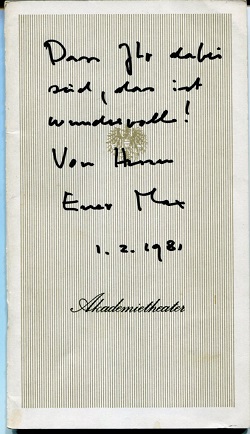 Dass Ihr dabei
seid, das ist
wundervoll!
Von Herzen
Euer Max
1. 2. 1981
Akademietheater